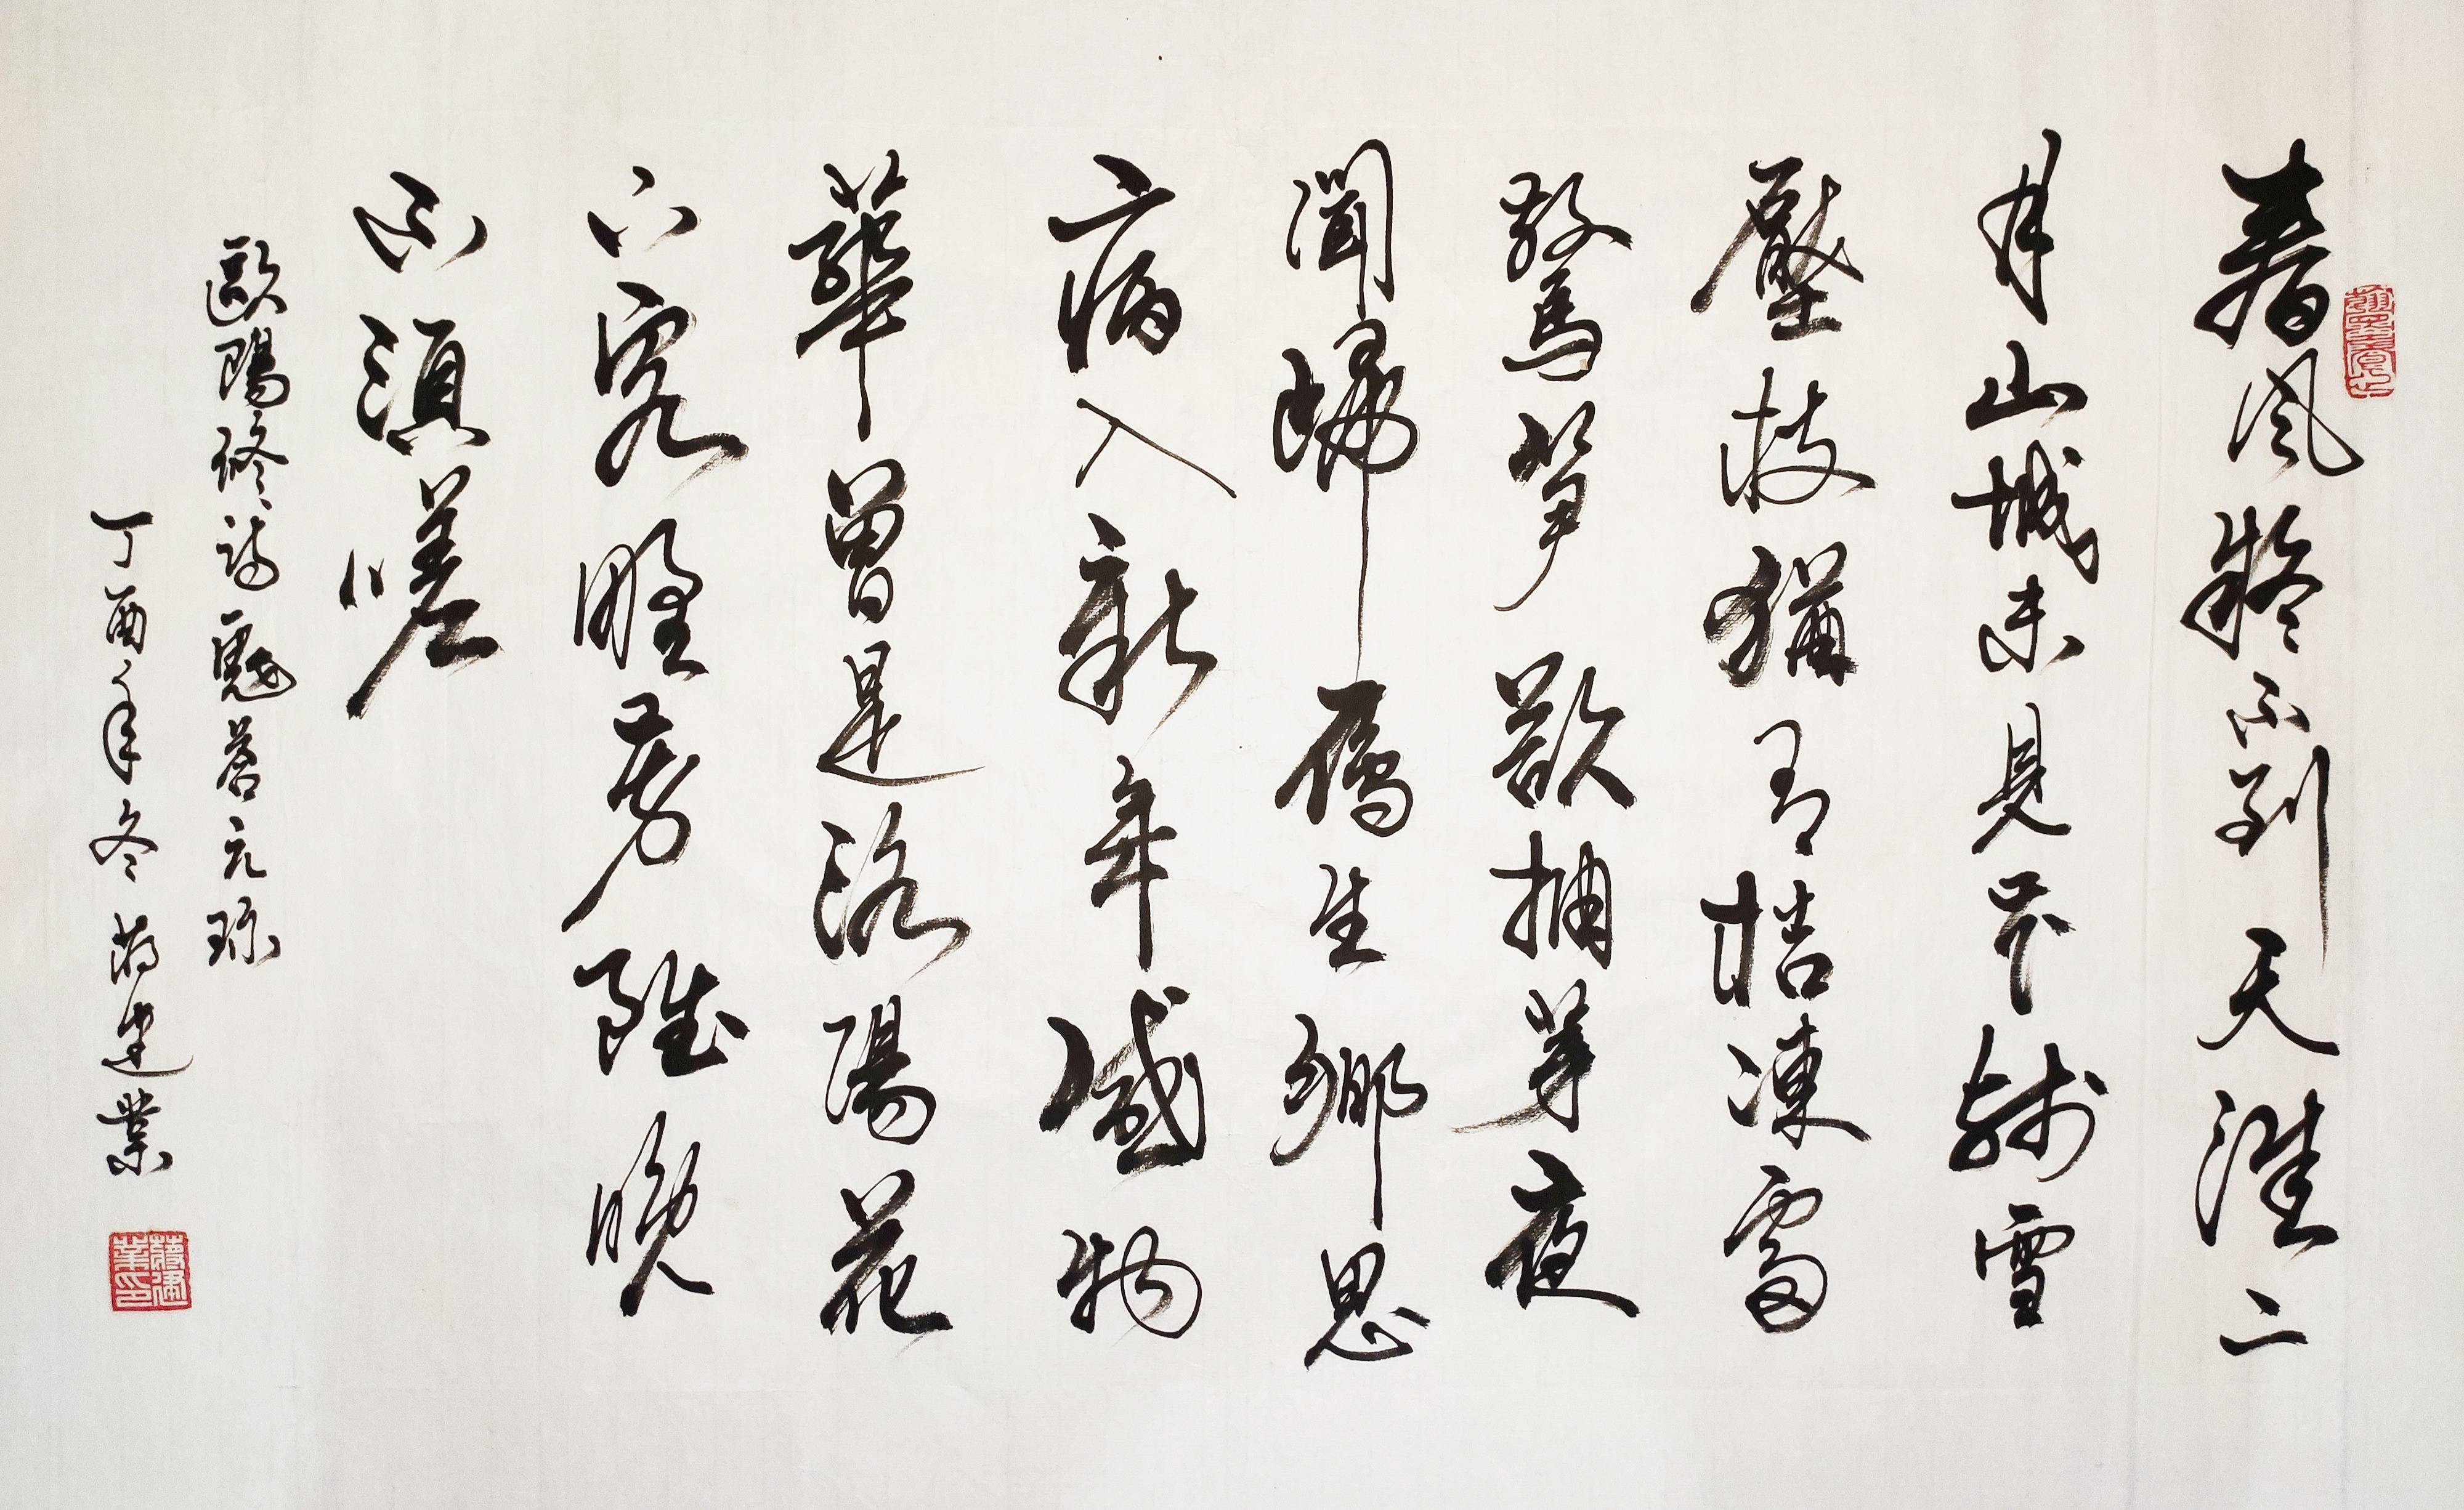 春風疑不到天涯二
月山城未見花殘雪
壓枝猶有桔凍雷
驚笋欲抽芽夜
聞歸雁生鄉思
病入新年感物
華曾是洛陽花
下客野芳雖晚
不須嗟
歐陽修詩戲答元珍
丁酉年冬 蔣建業
蔣建業印